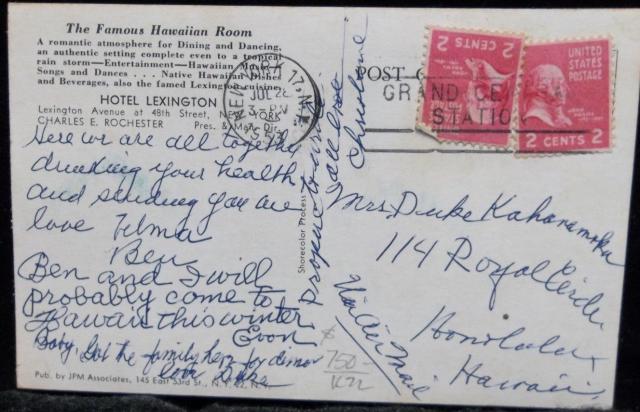 The Famous Hawaiian Room
A romantic atmosphere for Dining and Dancing,
an authentic setting complete even to a tropical
rain storm—Entertainment—Hawaiian
Songs and Dances . . . Native Hawaiian Dishes
and Beverages, also the famed Lexington cuisine.
HOTEL LEXINGTON
Lexington Avenue at 48th Street, NEW YORK
CHARLES E. ROCHESTER Pres. & Man. Dir.
Here we are all together
drinking your health
and sending you are
love Velma
Ben
Ben and I will
probably come to
Hawaii this winter
Evon
Baby, got the family here for dinner
love Duke
Pub. by JPM Associates, 145 East 53rd St., N.Y. 22, N.Y.
Shorecolor Process
NEW YORK 17, N.Y.
JUL 28
GRAND CE
STATION
POST
2 CENTS 2
UNITED
STATES
POSTAGE
2 CENTS
Mrs. Duke Kahanamoku
114 Royal Circle
Honolulu
Hawaii
Via Air Mail
750-